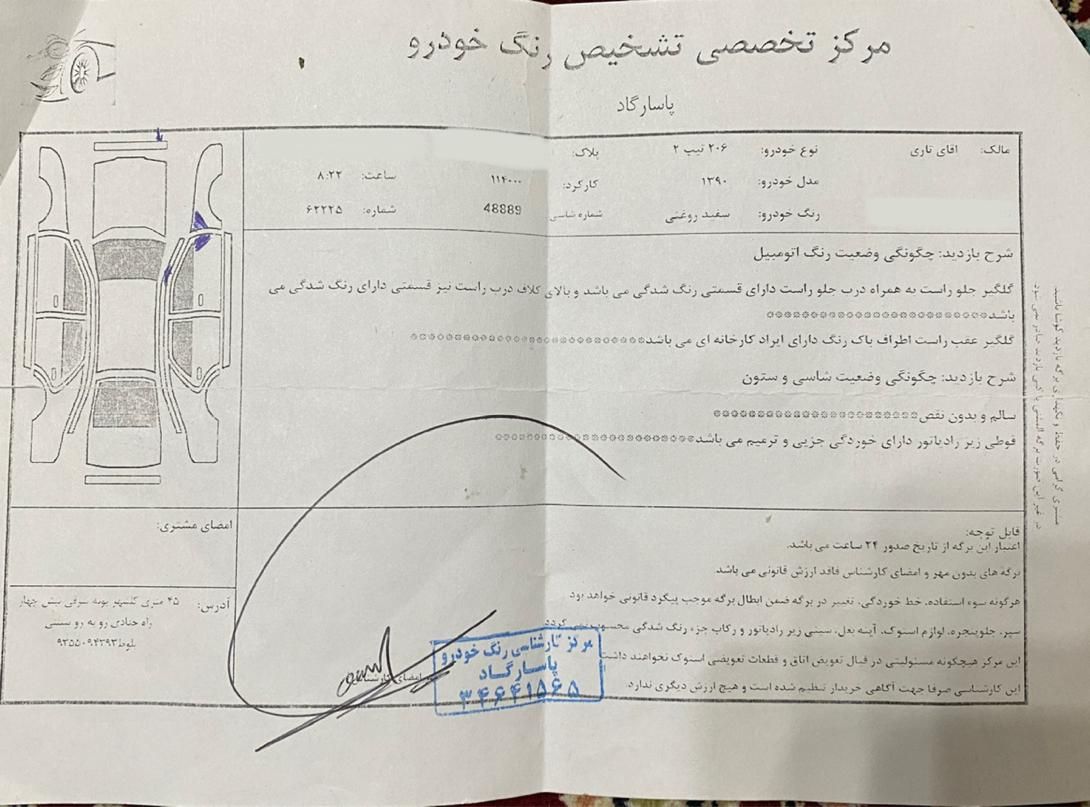 مرکز تخصصی تشخیص رنگ خودرو
پاسارگاد
مالک: اقای تاری نوع خودرو: ۲۰۶ تیپ ۲ پلاک:
مدل خودرو: ۱۳۹۰ کارکرد: ۱۱۴۰۰۰ ساعت: ۸:۲۲
رنگ خودرو: سفید روغنی شماره شاسی 48889 شماره: ۶۲۲۲۵
شرح بازدید: چگونگی وضعیت رنگ اتومبیل
گلگیر جلو راست به همراه درب جلو راست دارای قسمتی رنگ شدگی می باشد و بالای کلاف درب راست نیز قسمتی دارای رنگ شدگی می
باشد
گلگیر عقب راست اطراف باک رنگ دارای ایراد کارخانه ای می باشد
شرح بازدید: چگونگی وضعیت شاسی و ستون
سالم و بدون نقص
قوطی زیر رادیاتور دارای خوردگی جزیی و ترمیم می باشد
قابل توجه:
اعتبار این برگه از تاریخ صدور ۲۴ ساعت می باشد.
برگه های بدون مهر و امضای کارشناس فاقد ارزش قانونی می باشد
هرگونه سوء استفاده، خط خوردگی، تغییر در برگه ضمن ابطال برگه موجب پیگرد قانونی خواهد بود
سپر، جلوپنجره، لوازم استوک، آینه بغل، سینی زیر رادیاتور و رکاب جزء رنگ شدگی محسوب نمی گردد
این مرکز هیچگونه مسئولیتی در قبال تعویض اتاق و قطعات تعویضی استوک نخواهند داشت
این کارشناسی صرفا جهت آگاهی خریدار تنظیم شده است و هیچ ارزش دیگری ندارد.
امضای مشتری:
آدرس: ۴۵ متری گلشهر
راه
۰۹۳۵۵۰۹۴۳۹۳
امضای کارشناس
مرکز کارشناسی رنگ خودرو
پاسارگاد
۳۴۶۴۱۵۶۵
مشتری گرامی در حفظ و نگهداری برگه بازدید کوشا باشید